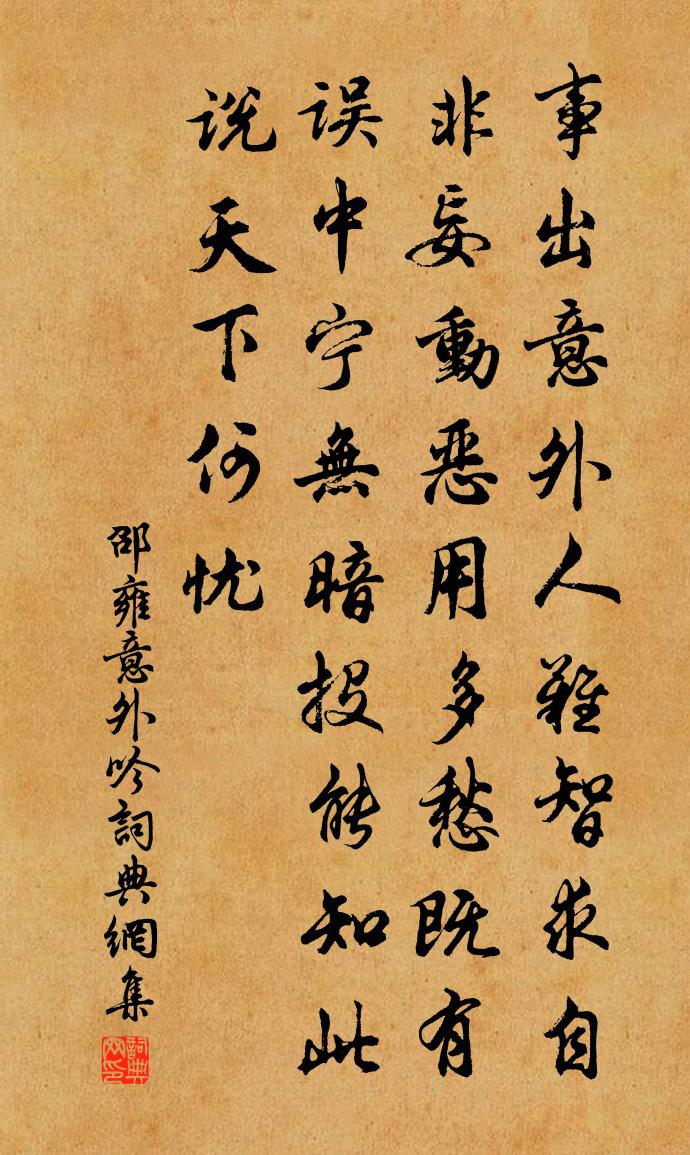 事出意外人難智求自
非妄動惡用多愁既有
误中宁無暗投能知此
说天下何忧
邵雍意外吟詞典網集
詞典网印